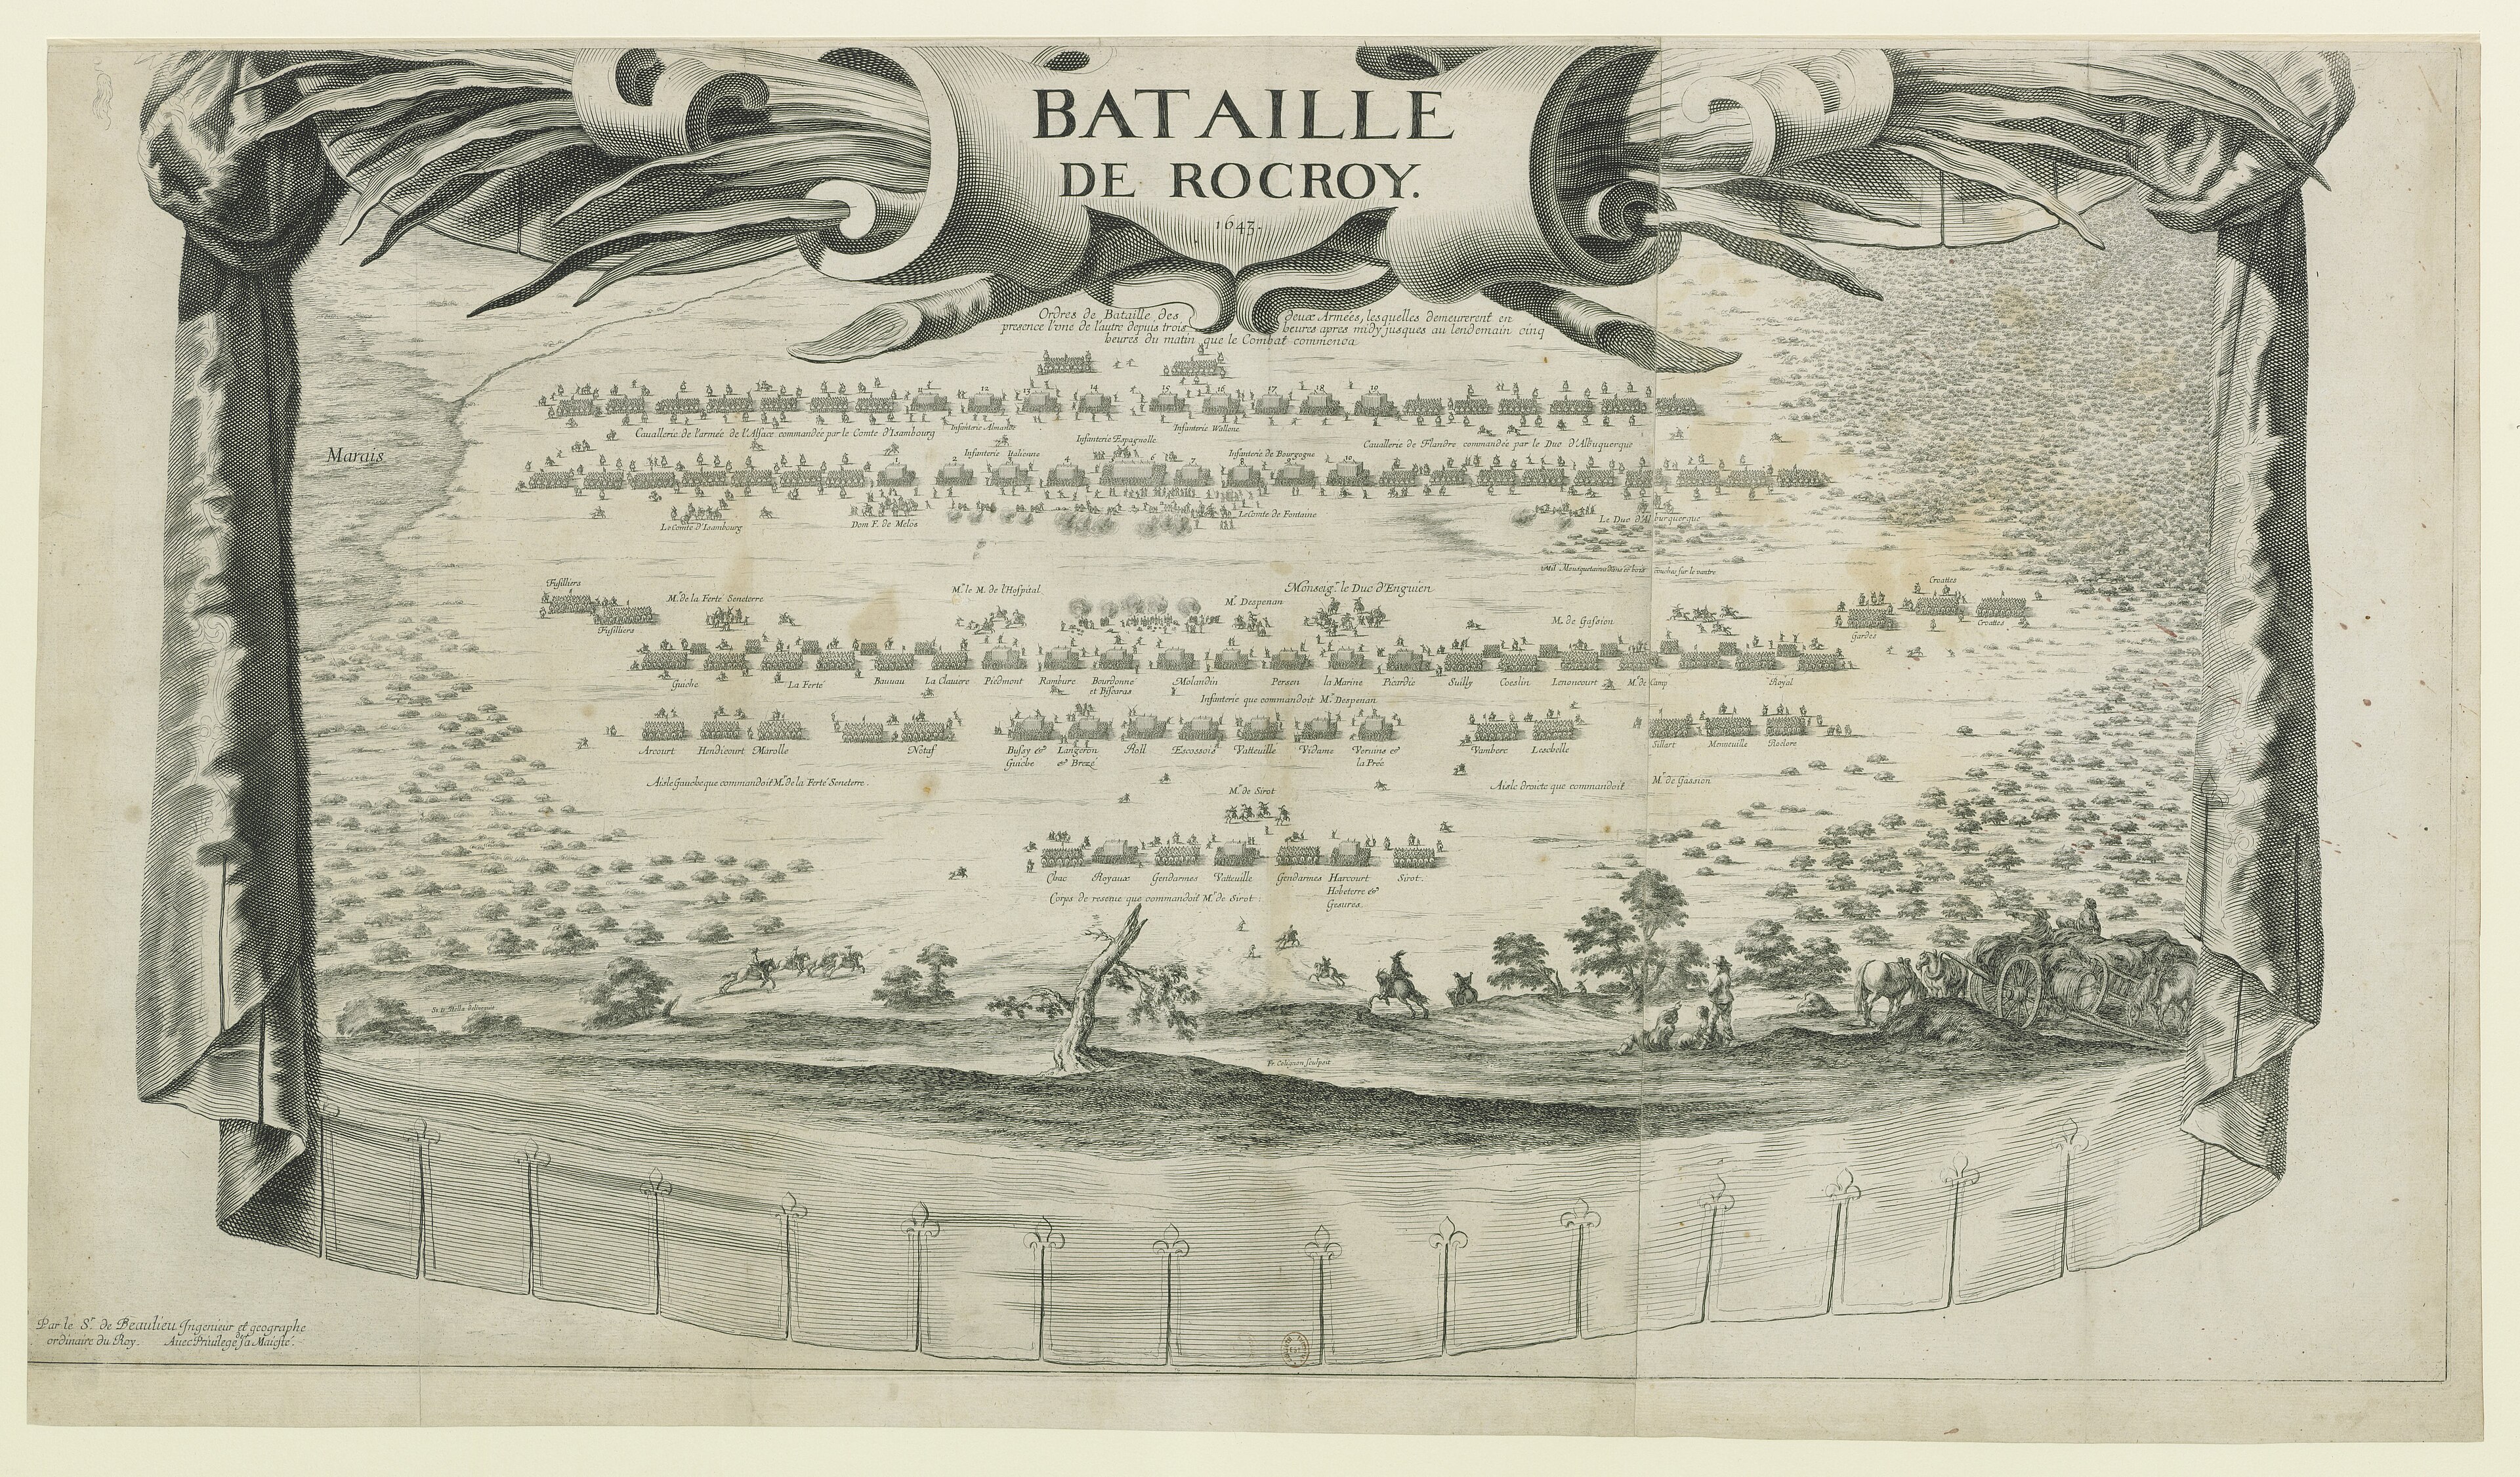 BATAILLE
DE ROCROY.
1643.
Ordres de Bataille des deux Armées, lesquelles demeurerent en
presence l'vne de l'autre depuis trois heures apres midy jusques au lendemain cinq
heures du matin que le Combat commenca
11 12 13 14 15 16 17 18 19
Infanterie Almande
Infanterie Wallone
Cauallerie de l'armée de l'Alsace commandée par le Comte d'Isambourg
Infanterie Espagnolle
Cauallerie de Flandre commandée par le Duc d'Albuquerque
Marais
Infanterie Italienne
Infanterie de Bourgogne
1 2 4 6 7 8 9 10
Le Comte d'Isambourg
Dom F. de Melos
Le Comte de Fontaine
Le Duc d'Alburquerque
Mil Mousquetaires dans ce bois couchez sur le ventre
Fusilliers
Fusilliers
Mr. de la Ferté Seneterre
Mr. le M. de l'Hospital
Mr. Despenan
Monseigr. le Duc d'Enguien
M. de Gassion
Croattes
Gardes
Croattes
Guiche
La Ferté
Bauuau
La Clauiere
Piedmont
Rambure
Bourdonné et Biscaras
Molandin
Persen
la Marine
Picardie
Suilly
Coeslin
Lenoncourt
Mr. de Camp
Royal
Infanterie que commandoit Mr. Despenan
Arcourt
Hendicourt
Marolle
Notaf
Bussy & Guiche
Langeron & Brezé
Roll
Escossois
Vatteuille
Vidame
Veruins & la Prée
Vamberc
Leschelle
Sillart
Menneuille
Roclere
Aisle Gauche que commandoit Mr. de la Ferté Seneterre.
Aisle droicte que commandoit Mr. de Gassion
Mr. de Sirot
Chac
Royaux
Gendarmes
Vatteuille
Gendarmes
Harcourt Hobeterre & Gesures.
Sirot.
Corps de reserue que commandoit Mr. de Sirot
St. D. Bella delineauit
Fr. Colignon sculpsit
Par le Sr. de Beaulieu Ingenieur et geographe
ordinaire du Roy. Auec Priuilege de sa Maiesté.